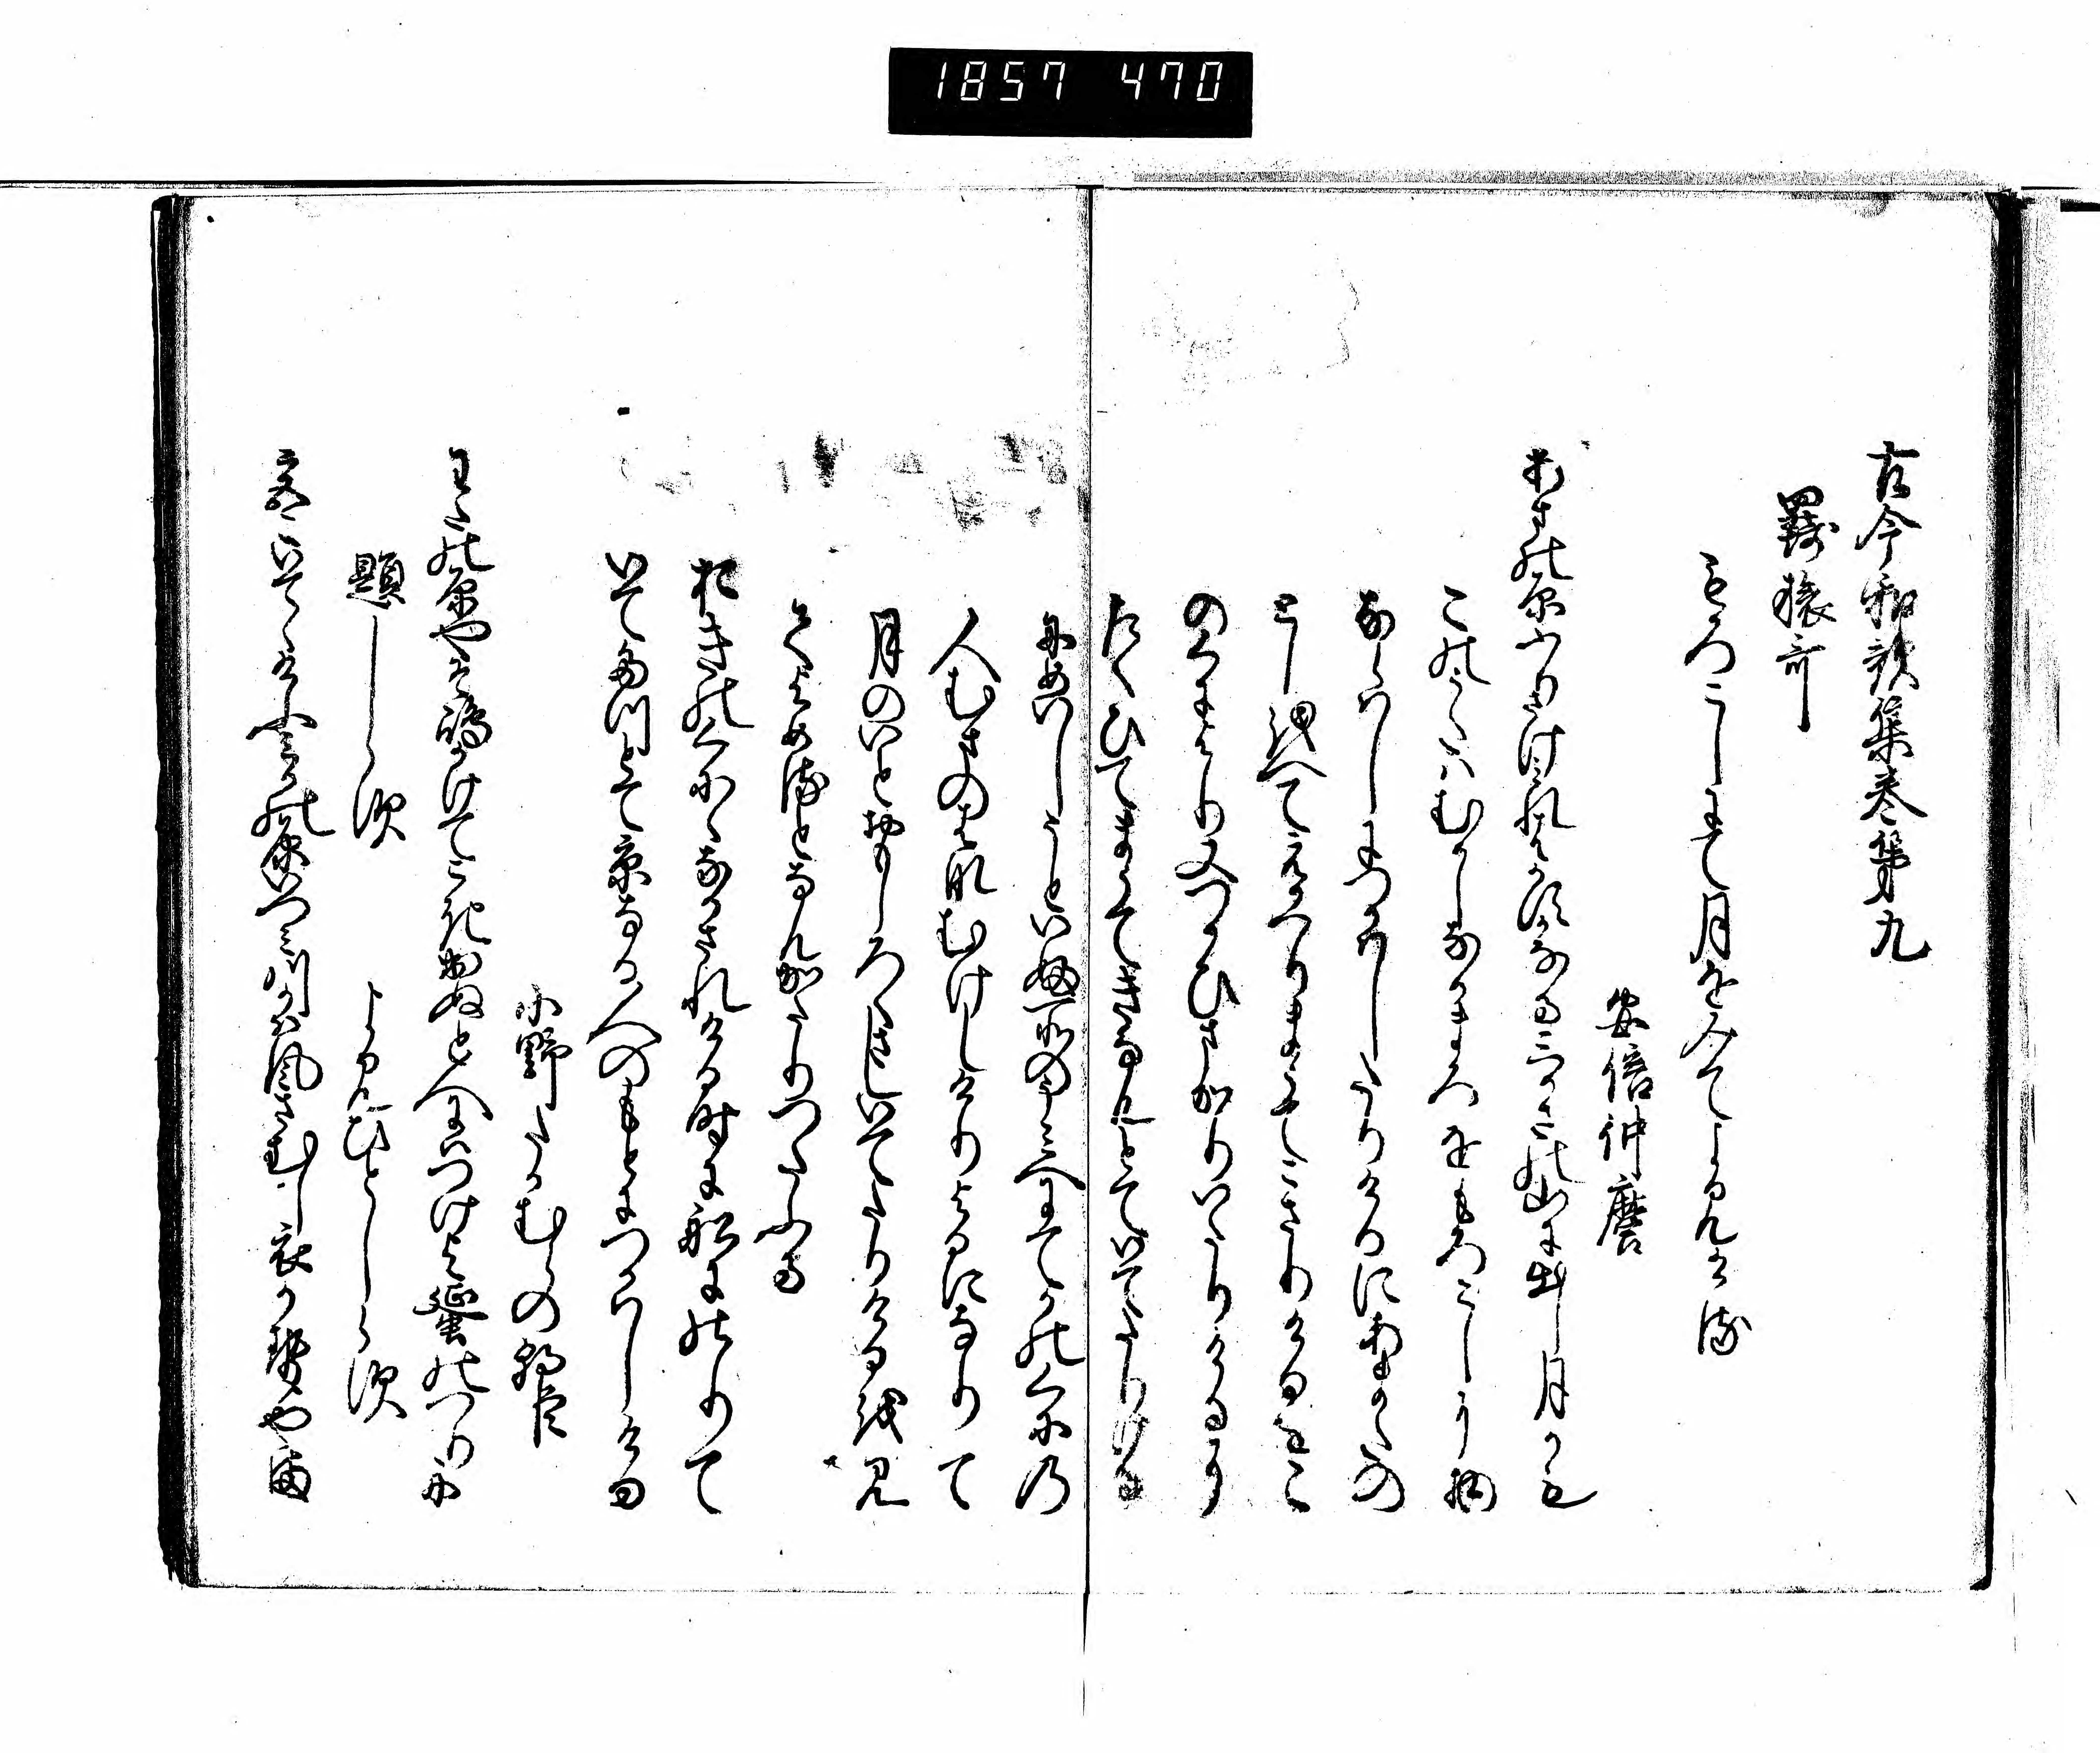 1857 470
古今和歌集巻第九
羈旅哥
もろこしにて月をみてよみける
安倍仲麿
あまの原ふりさけ見れはかすかなるみかさの山に出し月かも
この哥はむかしなかまろをもろこしに物
ならはしにつかはしたりけるにあまたの
とし越へてえかへりまうてこさりけるをこ
のくによりまたつかひまかりいたりけるに
たくひてまうてきなんとていてたりける
にめいしうといふ所のうみへにてかのくにの
人むまのはなむけしけりよるになりて
月のいとおもしろくさしいてたりける越見
てよめるとなんかたりつたふる
おきのくにゝなかされける時に船にのりて
いてたつとて京なる人のもとにつかはしける
小野たかむらの朝臣
わたの原やそ嶋かけてこき出ぬと人にはつけよ蜑のつり舟
題しらす
よみひとしらす
都いてゝけふみかの原いつみ川かは風さむし衣かせやま